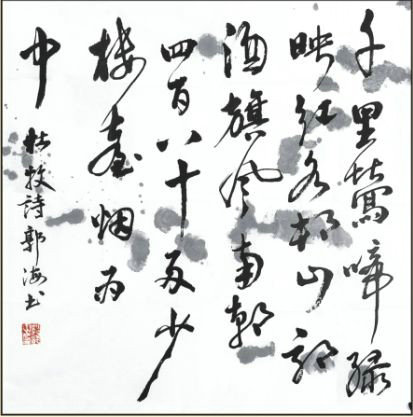 千里鶯啼绿
映红水邨山郭
酒旗风南朝
四百八十多少
楼臺烟雨
中
杜牧詩郭海书